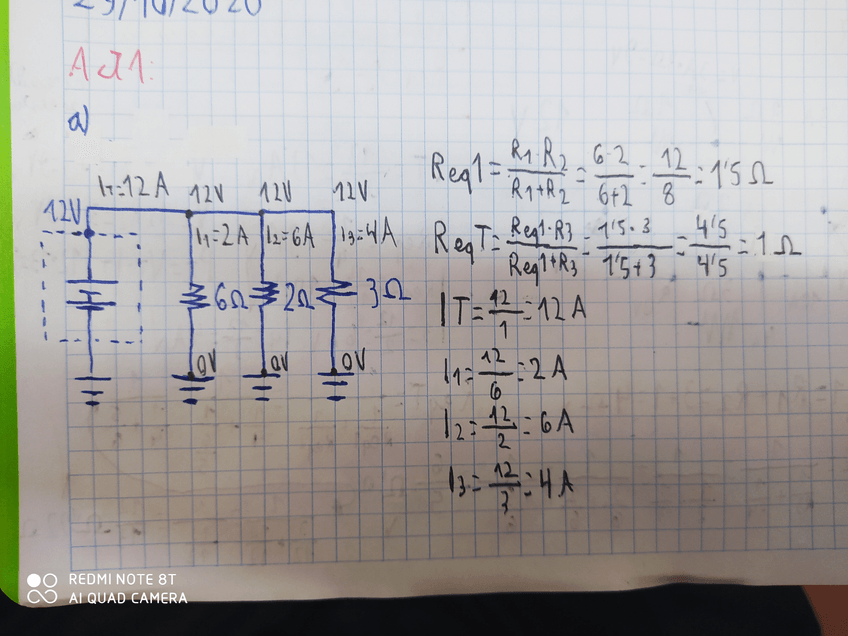 29/10/2020
Act 1:
a)
IT=12A 12V 12V 12V
12V
I1=2A I2=6A I3=4A
6Ω 2Ω 3Ω
0V 0V 0V
Req1 = R1·R2 / R1+R2 = 6·2 / 6+2 = 12 / 8 = 1'5 Ω
ReqT = Req1·R3 / Req1+R3 = 1'5·3 / 1'5+3 = 4'5 / 4'5 = 1 Ω
IT = 12 / 1 = 12 A
I1 = 12 / 6 = 2A
I2 = 12 / 2 = 6A
I3 = 12 / 3 = 4A
REDMI NOTE 8T
AI QUAD CAMERA